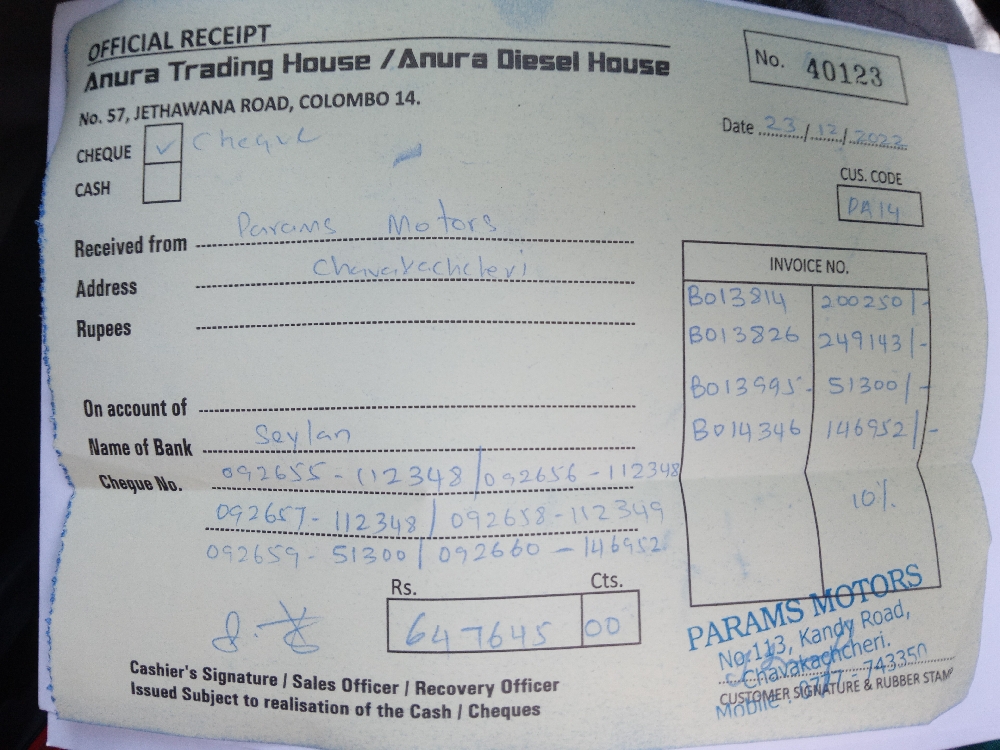 OFFICIAL RECEIPT
Anura Trading House / Anura Diesel House
No. 57, JETHAWANA ROAD, COLOMBO 14.
No. 40123
Date 23/12/2022
CHEQUE ✓ Cheque
CASH
CUS. CODE
PA14
Received from Params Motors
Address Chavakachcheri
Rupees
On account of
Name of Bank Seylan
Cheque No. 092655-112348/092656-112348
092657-112348/092658-112349
092659-51300/092660-146952
INVOICE NO.
B013814 200250/-
B013826 249143/-
B013995- 51300/-
B014346 146952/-
10%
Rs. Cts.
647645 00
Cashier's Signature / Sales Officer / Recovery Officer
Issued Subject to realisation of the Cash / Cheques
PARAMS MOTORS
No. 113, Kandy Road,
Chavakachcheri.
Mobile : 0777 - 743350
CUSTOMER SIGNATURE & RUBBER STAMP